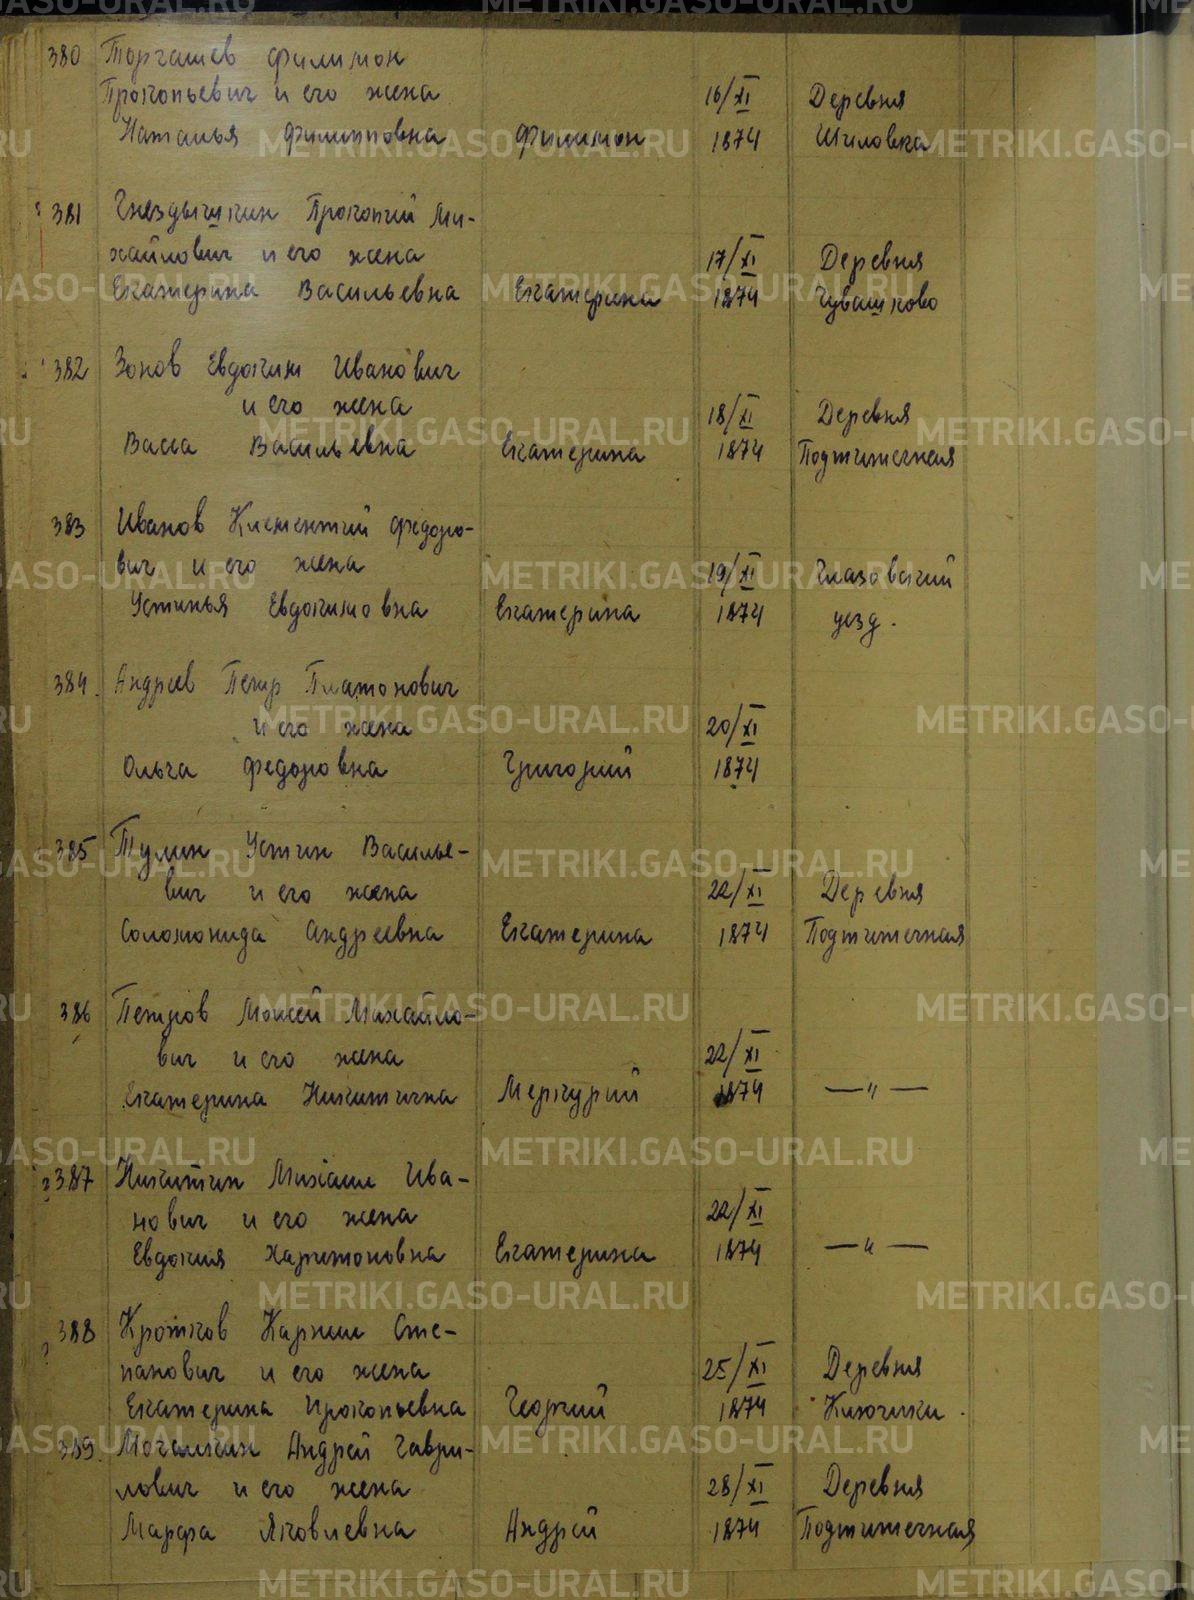 380 Торгашев Филимон
Прокопьевич и его жена 16/XI Деревня
Наталья Филипповна Филимон 1874 Шиловка
381 Гнездышкин Прокопий Ми-
хайлович и его жена 17/XI Деревня
Екатерина Васильевна Екатерина 1874 Чувашково
382 Зонов Евдоким Иванович
и его жена 18/XI Деревня
Васса Васильевна Екатерина 1874 Подтитечная
383 Иванов Клементий Федоро-
вич и его жена 19/XI Глазовский
Устинья Евдокимовна Екатерина 1874 уезд.
384. Андреев Петр Платонович
и его жена 20/XI
Ольга Федоровна Григорий 1874
385 Тулин Устин Василье-
вич и его жена 22/XI Деревня
Соломонида Андреевна Екатерина 1874 Подтитечная
386 Петров Моисей Михайло-
вич и его жена 22/XI
Екатерина Никитична Меркурий 1874 — " —
387 Никитин Михаил Ива-
нович и его жена 22/XI
Евдокия Харитоновна Екатерина 1874 — " —
388 Кротков Карпил Сте-
панович и его жена 25/XI Деревня
Екатерина Прокопьевна Георгий 1874 Ключики.
389. Мочалкин Андрей Гаври-
лович и его жена 28/XI Деревня
Марфа Яковлевна Андрей 1874 Подтитечная
METRIKI.GASO-URAL.RU